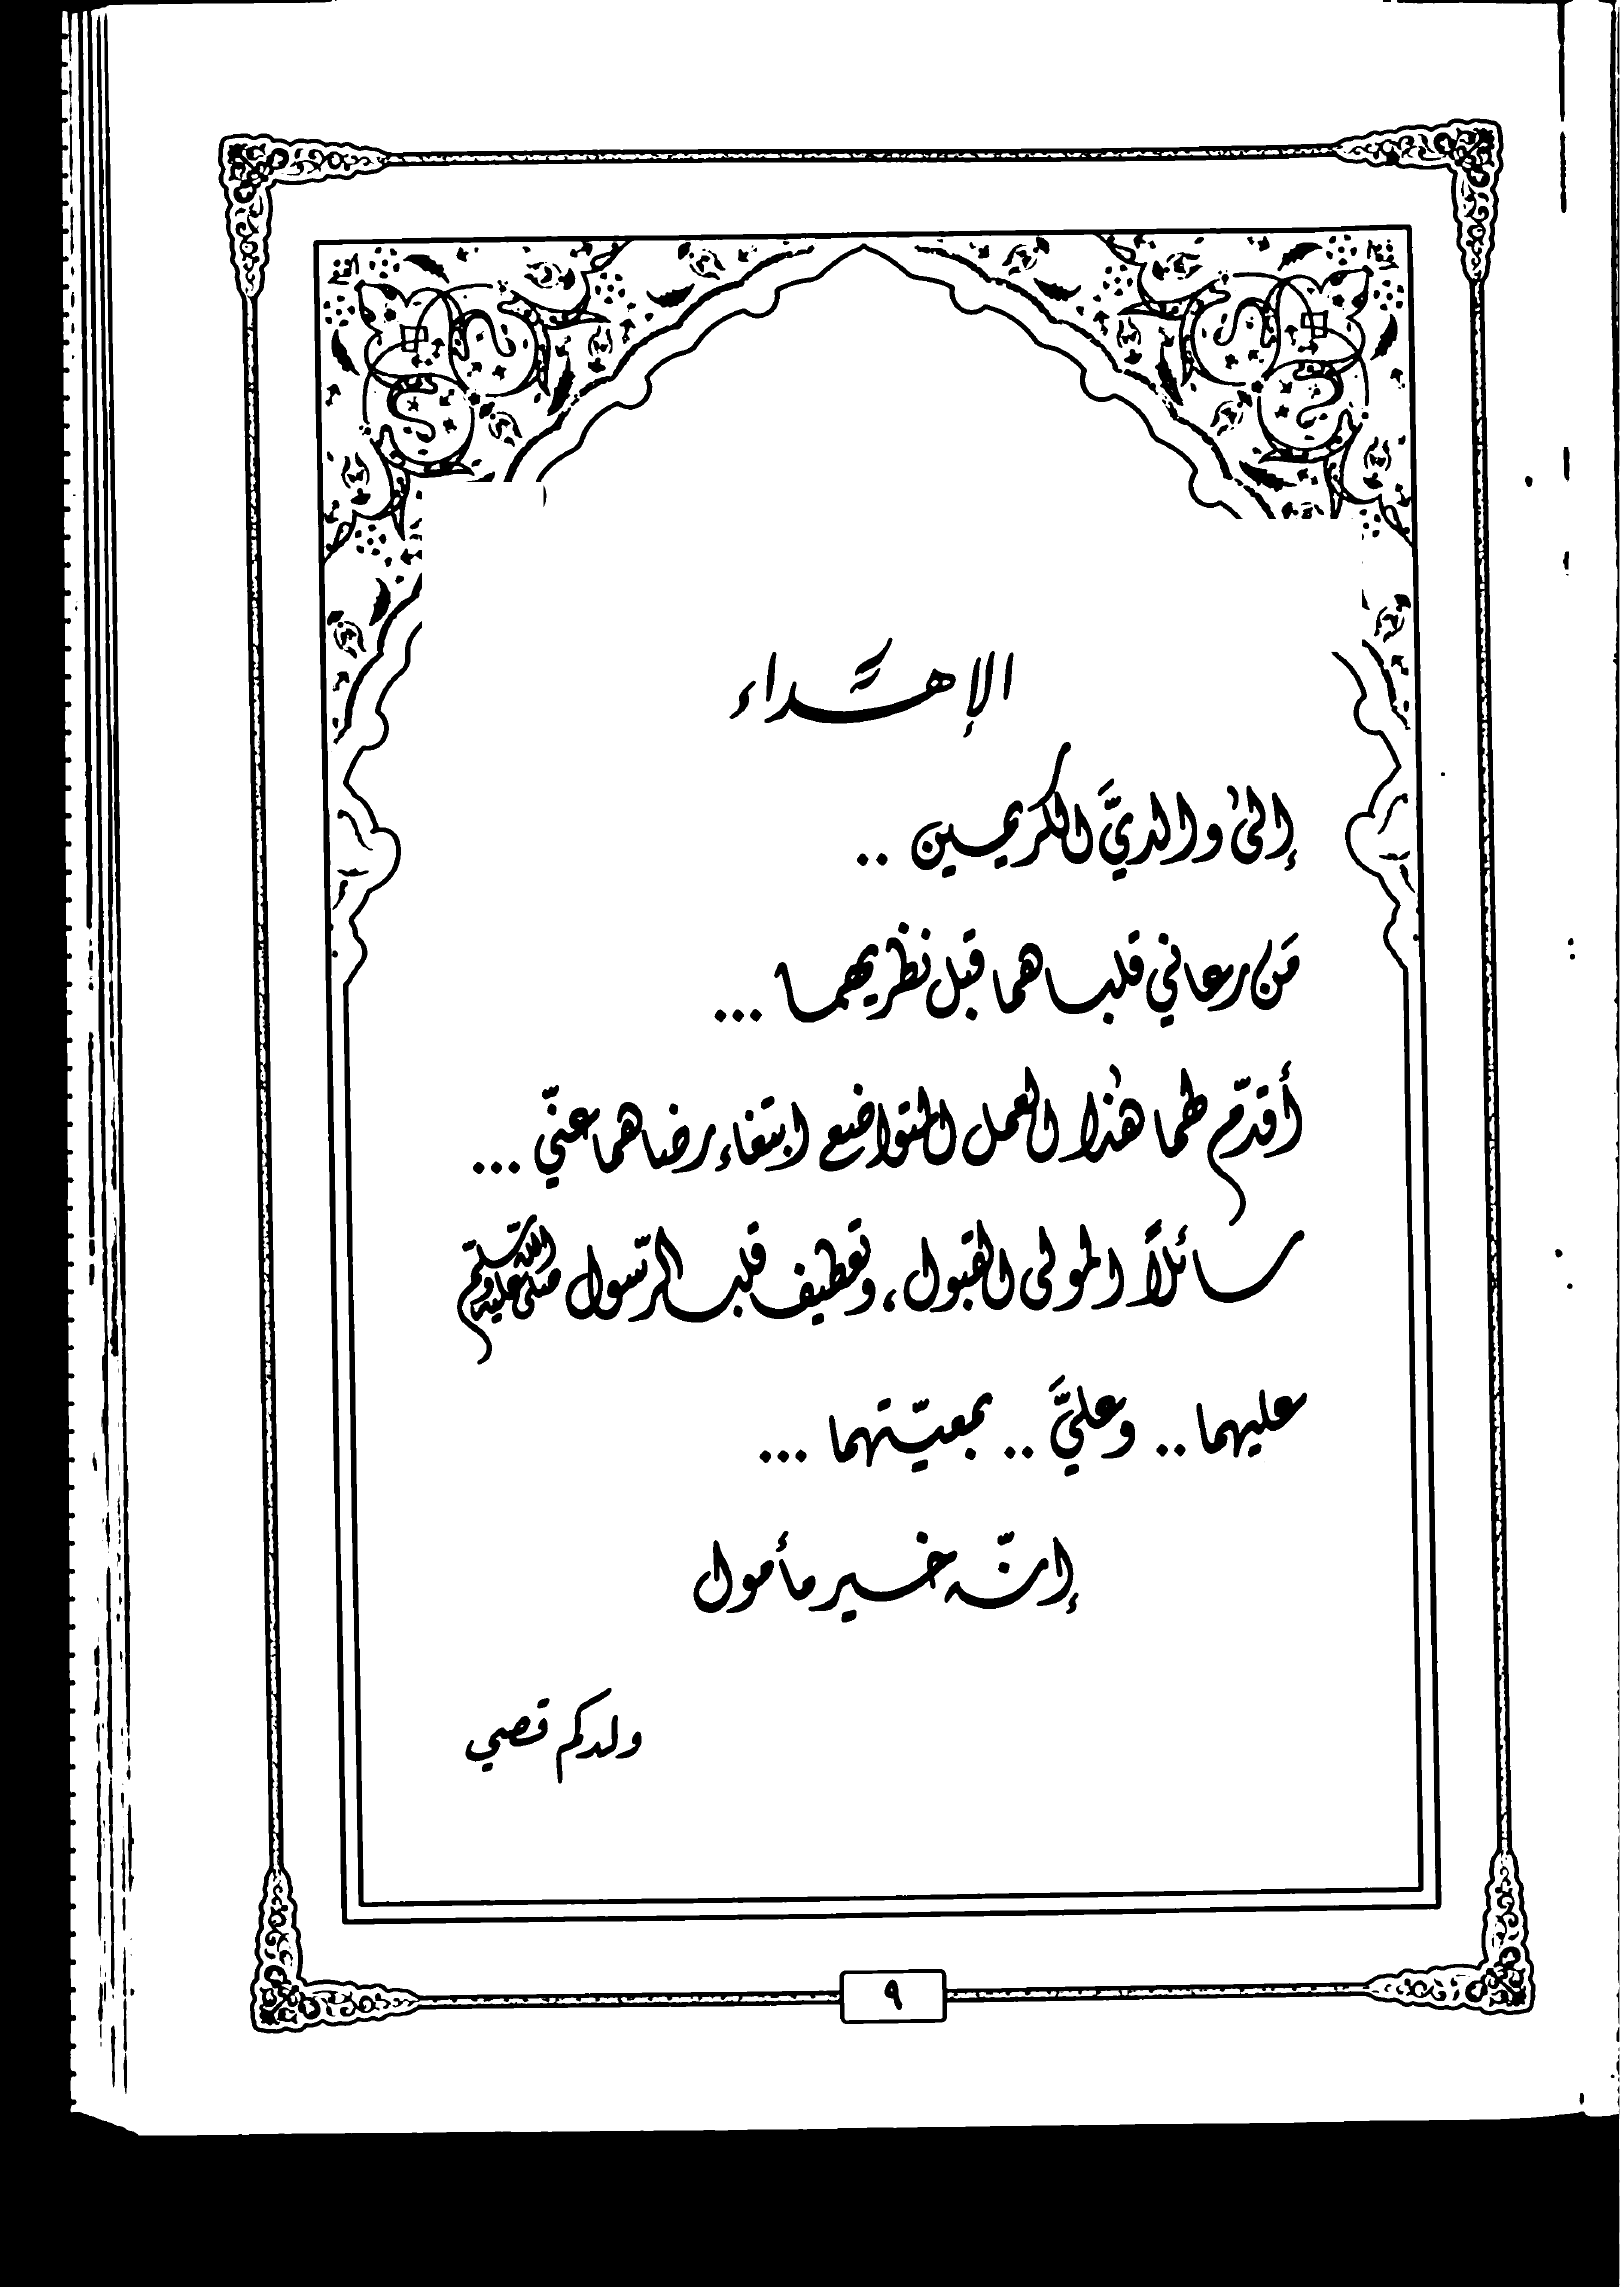 الإهداء
إلىٰ والديَّ الكريمين ..
مَن رعاني قلباهما قبل نظريهما ...
أقدّم لهما هٰذا العمل المتواضع ابتغاء رضاهما عنّي ...
سائلاً المولى القبول، وتعطيف قلب الرّسول صلى الله عليه وسلم
عليهما .. وعليَّ .. بمعيّتهما ...
إنّه خير مأمول
ولدكم قصي
٩